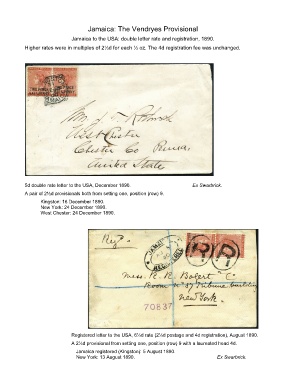 Jamaica: The Vendryes Provisional
Jamaica to the USA: double letter rate and registration, 1890.
Higher rates were in multiples of 2½d for each ½ oz. The 4d registration fee was unchanged.
West Chester
Chester Co Penna.
United States
5d double rate letter to the USA, December 1890. Ex Swarbrick.
A pair of 2½d provisionals both from setting one, position (row) 9.
Kingston: 16 December 1890.
New York: 24 December 1890.
West Chester: 24 December 1890.
Reg.
R R
Miss R. R. Bogert
Tribune building
New York.
70837
Registered letter to the USA, 6½d rate (2½d postage and 4d registration), August 1890.
A 2½d provisional from setting one, position (row) 9 with a laureated head 4d.
Jamaica registered (Kingston): 5 August 1890.
New York: 13 August 1890. Ex Swarbrick.